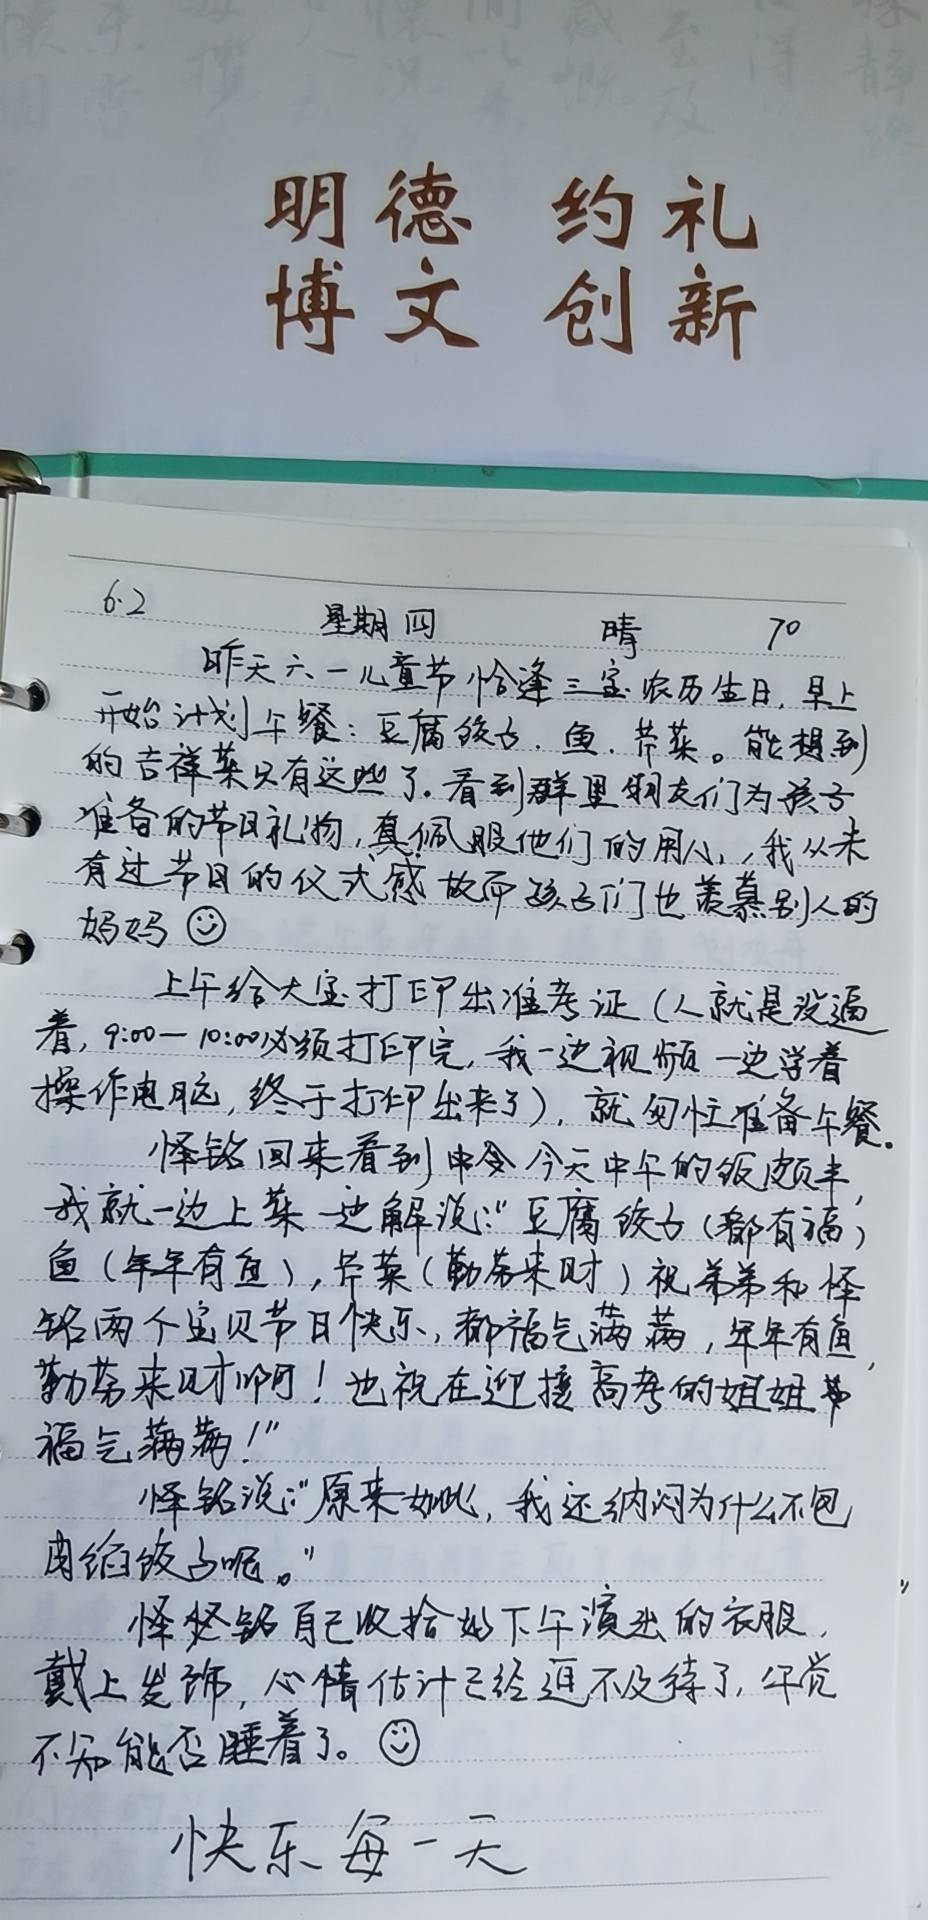 明德 约礼
博文 创新
6.2 星期四 晴 70
昨天六一儿童节恰逢三宝农历生日,早上
开始计划午餐:豆腐饺子、鱼、芹菜。能想到
的吉祥菜只有这些了。看到群里朋友们为孩子
准备的节日礼物,真佩服他们的用心,我从未
有过节日的仪式感故而孩子们也羡慕别人的
妈妈
上午给大宝打印出准考证(人就是没逼
着,9:00—10:00必须打印完,我一边视频一边学着
操作电脑,终于打印出来了),就匆忙准备午餐。
怿铭回来看到今天中午的饭颇丰,
我就一边上菜一边解说:“豆腐饺子(都有福)
鱼(年年有鱼),芹菜(勤劳来财)祝弟弟和怿
铭两个宝贝节日快乐,都福气满满,年年有鱼,
勤劳来财啊!也祝在迎接高考的姐姐
福气满满!”
怿铭说:“原来如此,我还纳闷为什么不包
肉馅饺子呢。”
怿铭自己收拾好下午演出的衣服,
戴上发饰,心情估计已经迫不及待了,午觉
不知能否睡着了。
快乐每一天